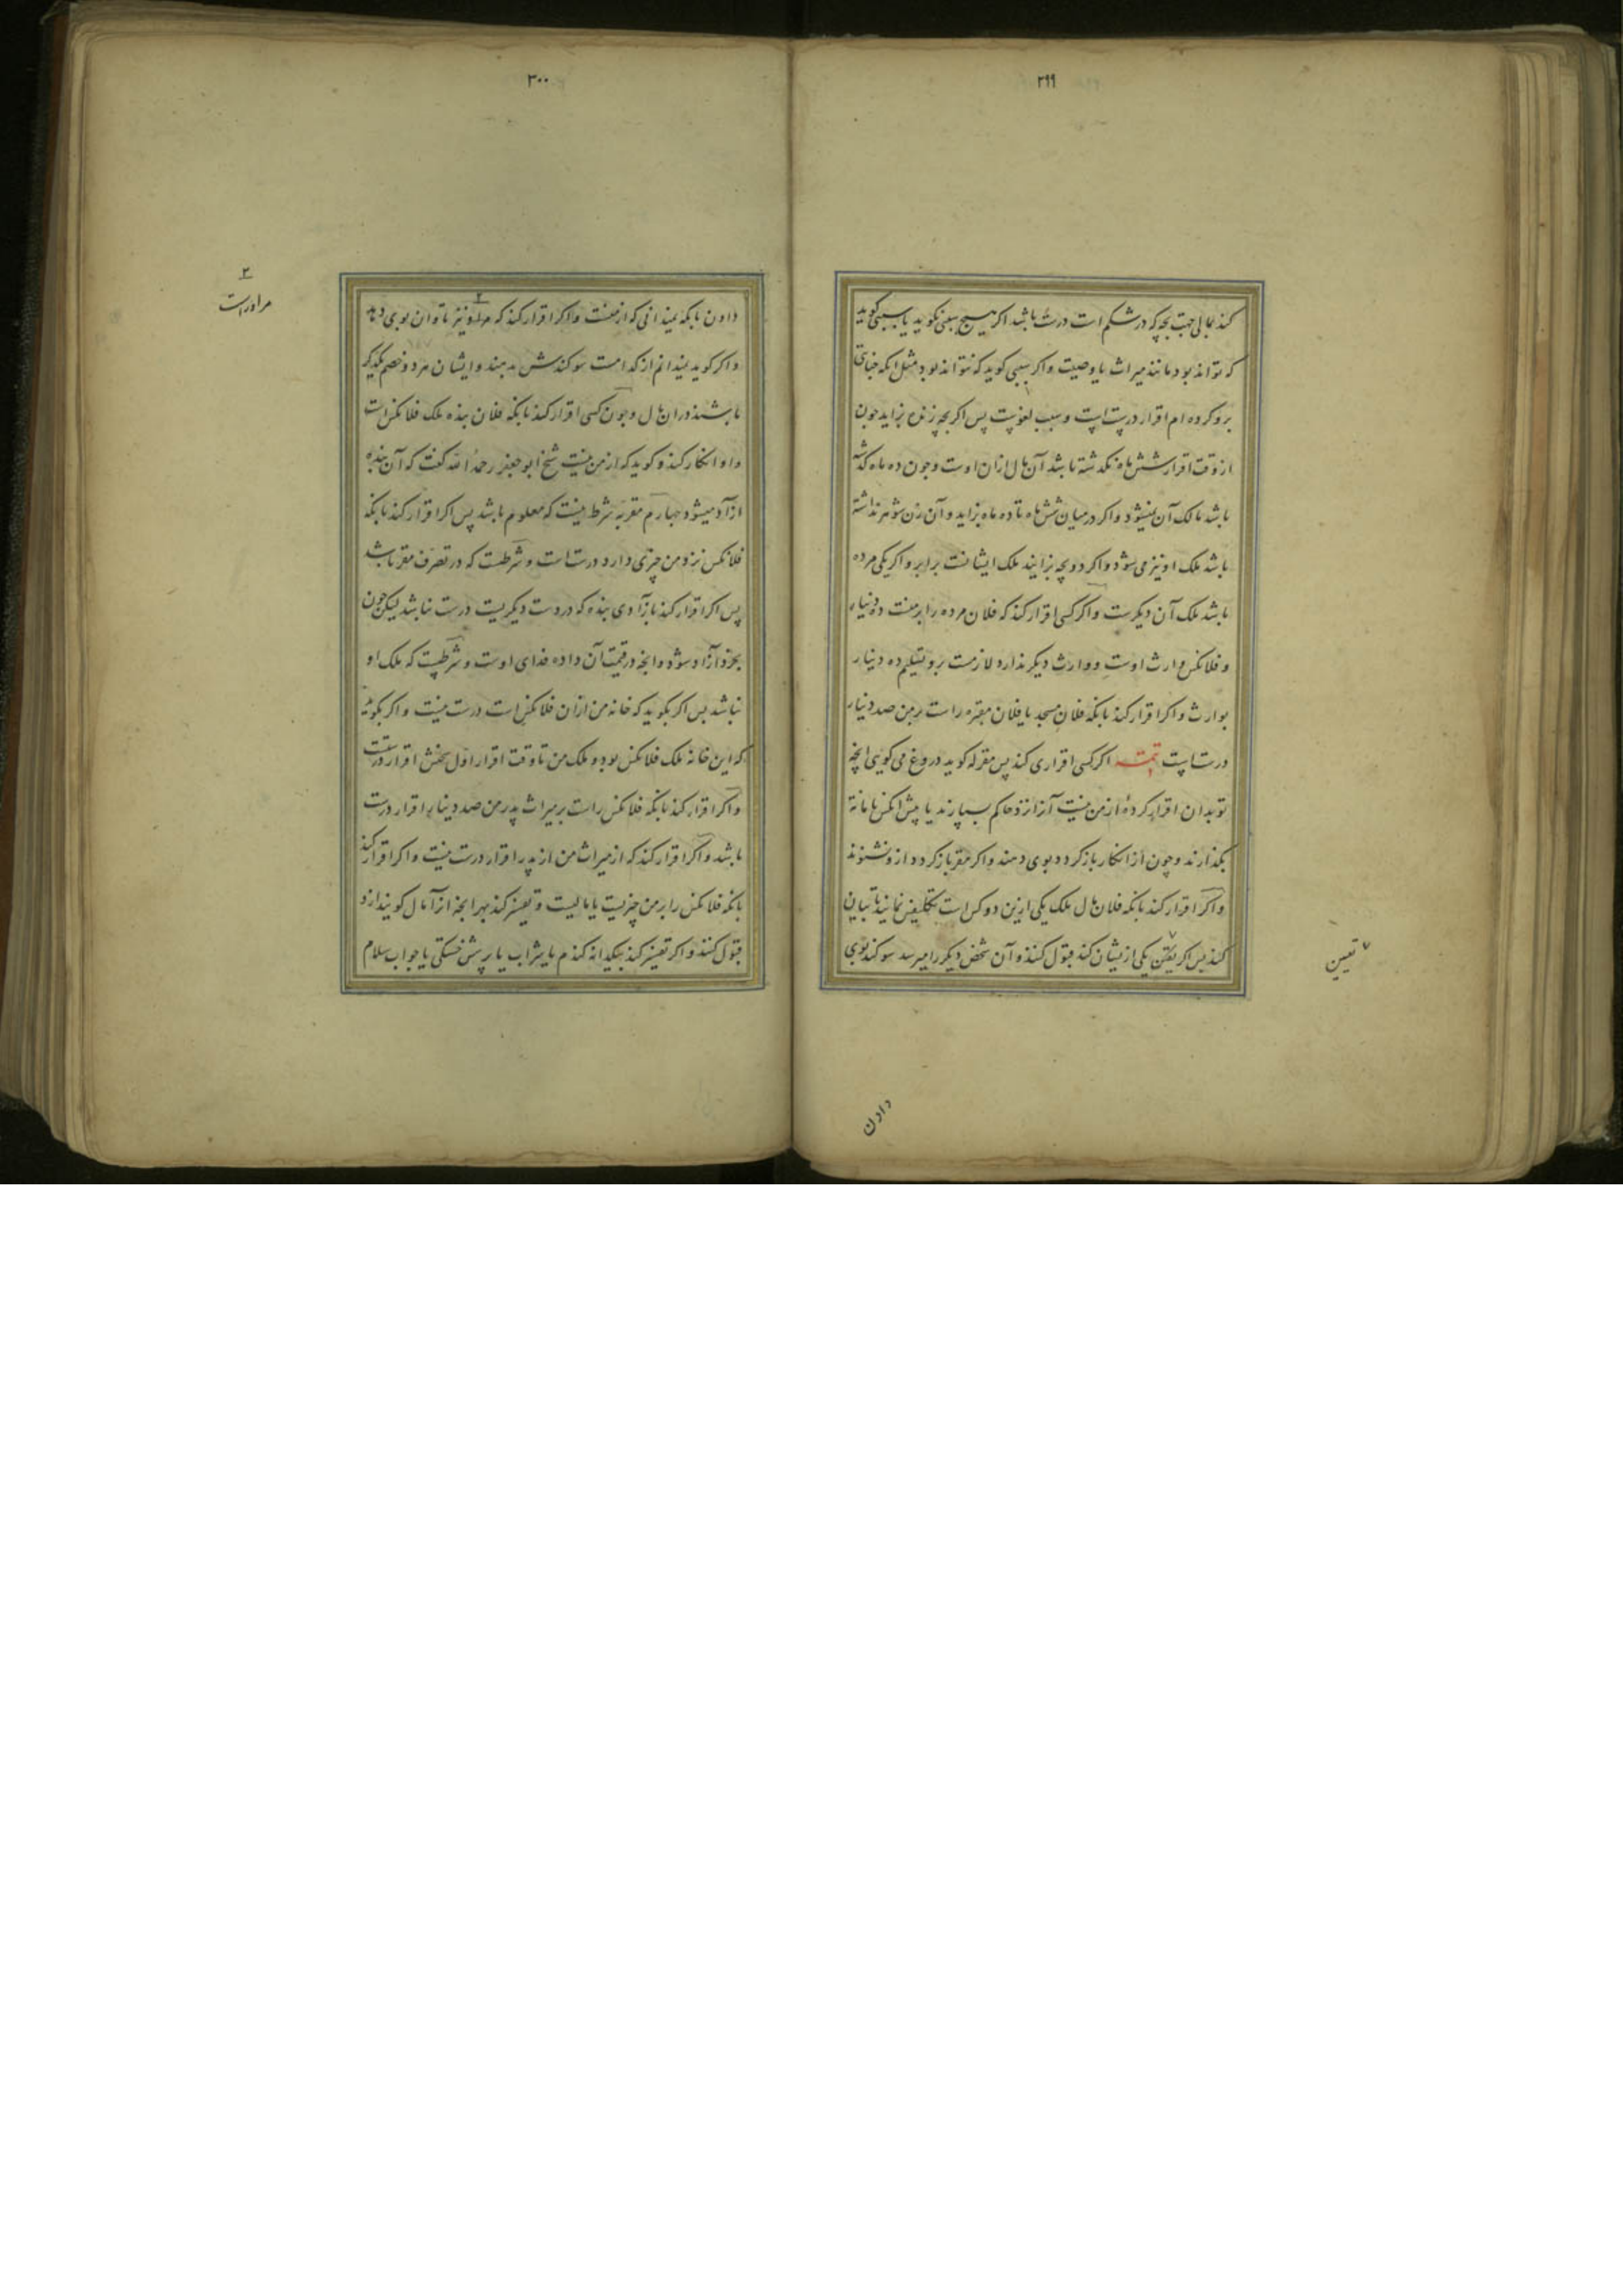 ۲۹۹
کند بمالی جهت بچه که در شکم است درست باشد اکر هیچ سببی نکوید یا سببی کوید
که تواند بود مانند میراث یا وصیت و اکر سببی کوید که نتواند بود مثل انکه جنایتی
برو کرده ام اقرار درستست و سبب لغوست پس اکر بچه زنده بزاید جون
از وقت اقرار شش ماه نکدشته باشد آن مال ازان اوست و جون ده ماه کدشته
باشد مالک آن نمیشود و اکر در میان شش ماه تا ده ماه بزاید و آن زن شوهر نداشته
باشد ملک او نیز می شود و اکر دو بچه بزایند ملک ایشانست برابر و اکر یکی مرده
باشد ملک آن دیکرست و اکر کسی اقرار کند که فلان مرده را برمنست ده دینار
و فلانکس وارث اوست و وارث دیکر ندارد لازمست برو تسلیم ده دینار
بوارث و اکر اقرار کند بانکه فلان مسجد یا فلان مقبره راست بر من صد دینار
درستست تتمه اکر کسی اقراری کند پس مقر له کوید دروغ می کویی انچه
تو بدان اقرار کردهٔ ازمن نیست آنرا نزد حاکم بسپارند یا پیش انکس بامانة
بکذارند و چون از انکار باز کردد بوی دهند و اکر مقر باز کردد ازو نشنوند
و اکر اقرار کند بانکه فلان مال ملک یکی ازین دو کس است تکلیفش نمایند تا بیان
کند پس اکر یقین یکی ازیشان کند قبول کنند و آن شخص دیکر را میرسد سوکند بوی
۷ تعیین
دادن
۳۰۰
دادن بانکه نمیدانی که ازمنست و اکر اقرار کند که مر او نیز تاوان بوی دهد
و اکر کوید نمیدانم از کدامست سوکندش بدهند و ایشان هر دو خصم یکدیکر
باشند دران مال و چون کسی اقرار کند بانکه فلان بنده ملک فلانکس است
و او انکار کند و کوید که ازمن نیست شیخ ابو جعفر رحمه الله کفت که آن بنده
ازاد میشود چهارم مقر به شرط نیست که معلوم باشد پس اکر اقرار کند بانکه
فلانکس نزد من چیزی دارد درست است و شرطست که در تصرف مقر باشد
پس اکر اقرار کند بازادی بنده که در دست دیکریست درست نباشد لیکن جون
بخرد آزاد شود و انچه در قیمت آن داده فدای اوست و شرطست که ملک او
نباشد پس اکر بکوید که خانه من ازان فلانکس است درست نیست و اکر بکوید
که این خانه ملک فلانکس بود و ملک من تا وقت اقرار اول سخنش اقرار درستست
و اکر اقرار کند بانکه فلانکس راست بر میراث پدر من صد دینار اقرار درست
باشد و اکر اقرار کند که از میراث من از پدر اقرار درست نیست و اکر اقرار کند
بانکه فلانکس را بر من چیزیست یا مالیست و تفسیر کند بهر انچه انرا مال کویند ازو
قبول کنند و اکر تفسیر کند بیکدانه کندم یا بشراب یا پرسش خستکی یا جواب سلام
۲
مر او راست